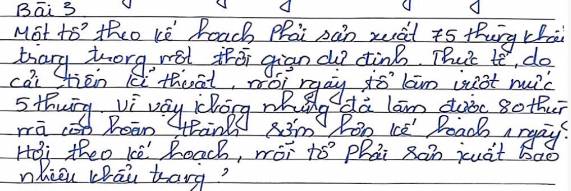 Bài 3
Một tổ theo kế hoạch phải sản xuất 75 thùng khẩu
trang trong một thời gian dự định. Thực tế, do
cải tiến kĩ thuật, mỗi ngày tổ làm vượt mức
5 thùng. Vì vậy không những đã làm được 80 thùn
mà còn hoàn thành sớm hơn kế hoạch 1 ngày.
Hỏi theo kế hoạch, mỗi tổ phải sản xuất bao
nhiêu khẩu trang?